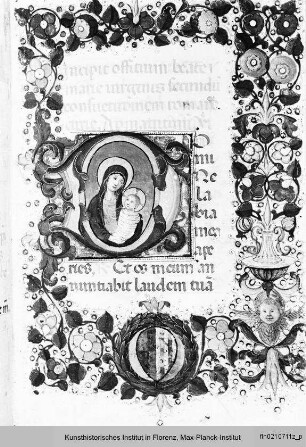 incipit offitium beate
marie virginis secundu
consuetudinem romane
D O
mi
ne
la
bia
mea
ape
ries, Et os meum an
nuntiabit laudem tuã
Kunsthistorisches Institut in Florenz, Max-Planck-Institut
fln0210711z_p